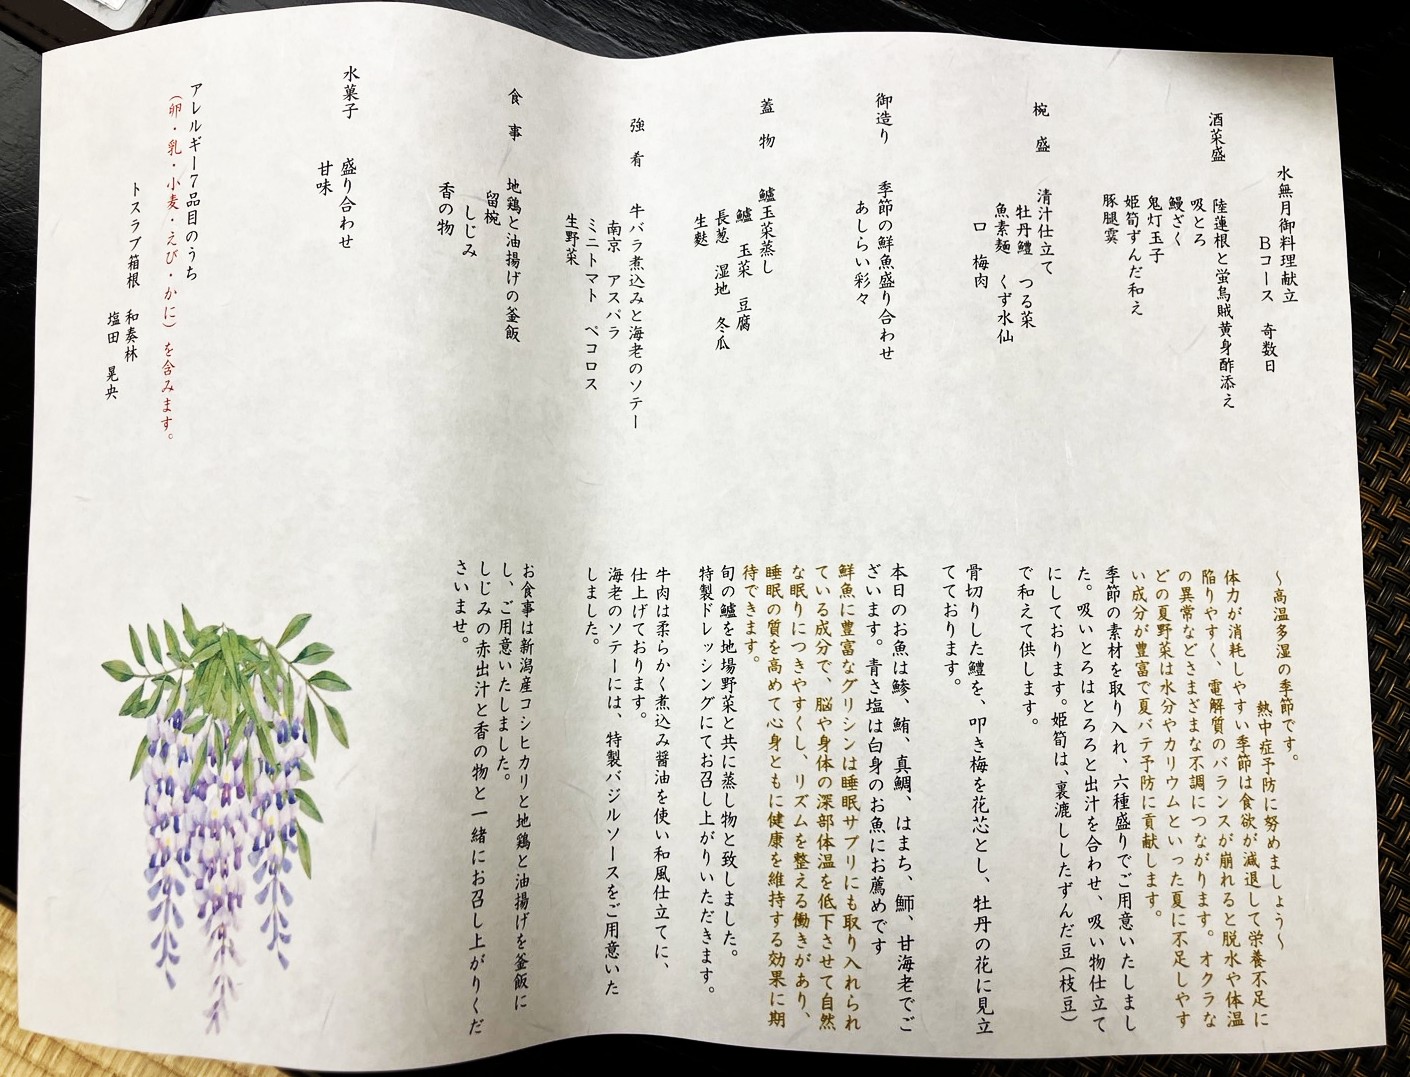 水無月御料理献立
Bコース 奇数日
酒菜盛 陸蓮根と蛍烏賊黄身酢添え
吸とろ
鰻ざく
鬼灯玉子
姫筍ずんだ和え
豚腿霙
椀盛 清汁仕立て
牡丹鱧 つる菜
魚素麺 くず水仙
口 梅肉
御造り 季節の鮮魚盛り合わせ
あしらい彩々
蓋物 鱸玉菜蒸し
鱸 玉菜 豆腐
長葱 湿地 冬瓜
生麩
強肴 牛バラ煮込みと海老のソテー
南京 アスパラ
ミニトマト ペコロス
生野菜
食事 地鶏と油揚げの釜飯
留椀
しじみ
香の物
水菓子 盛り合わせ
甘味
アレルギー7品目のうち
(卵・乳・小麦・えび・かに)を含みます。
トスラブ箱根 和奏林
塩田 晃央
〜高温多湿の季節です。
熱中症予防に努めましょう〜
体力が消耗しやすい季節は食欲が減退して栄養不足に
陥りやすく、電解質のバランスが崩れると脱水や体温
の異常などさまざまな不調につながります。オクラな
どの夏野菜は水分やカリウムといった夏に不足しやす
い成分が豊富で夏バテ予防に貢献します。
季節の素材を取り入れ、六種盛りでご用意いたしまし
た。吸いとろはとろろと出汁を合わせ、吸い物仕立て
にしております。姫筍は、裏漉ししたずんだ豆(枝豆)
で和えて供します。
骨切りした鱧を、叩き梅を花芯とし、牡丹の花に見立
てております。
本日のお魚は鯵、鮪、真鯛、はまち、鰤、甘海老でご
ざいます。青さ塩は白身のお魚にお薦めです
鮮魚に豊富なグリシンは睡眠サプリにも取り入れられ
ている成分で、脳や身体の深部体温を低下させて自然
な眠りにつきやすくし、リズムを整える働きがあり、
睡眠の質を高めて心身ともに健康を維持する効果に期
待できます。
旬の鱸を地場野菜と共に蒸し物と致しました。
特製ドレッシングにてお召し上がりいただきます。
牛肉は柔らかく煮込み醤油を使い和風仕立てに、
仕上げております。
海老のソテーには、特製バジルソースをご用意いた
しました。
お食事は新潟産コシヒカリと地鶏と油揚げを釜飯に
し、ご用意いたしました。
しじみの赤出汁と香の物と一緒にお召し上がりくだ
さいませ。